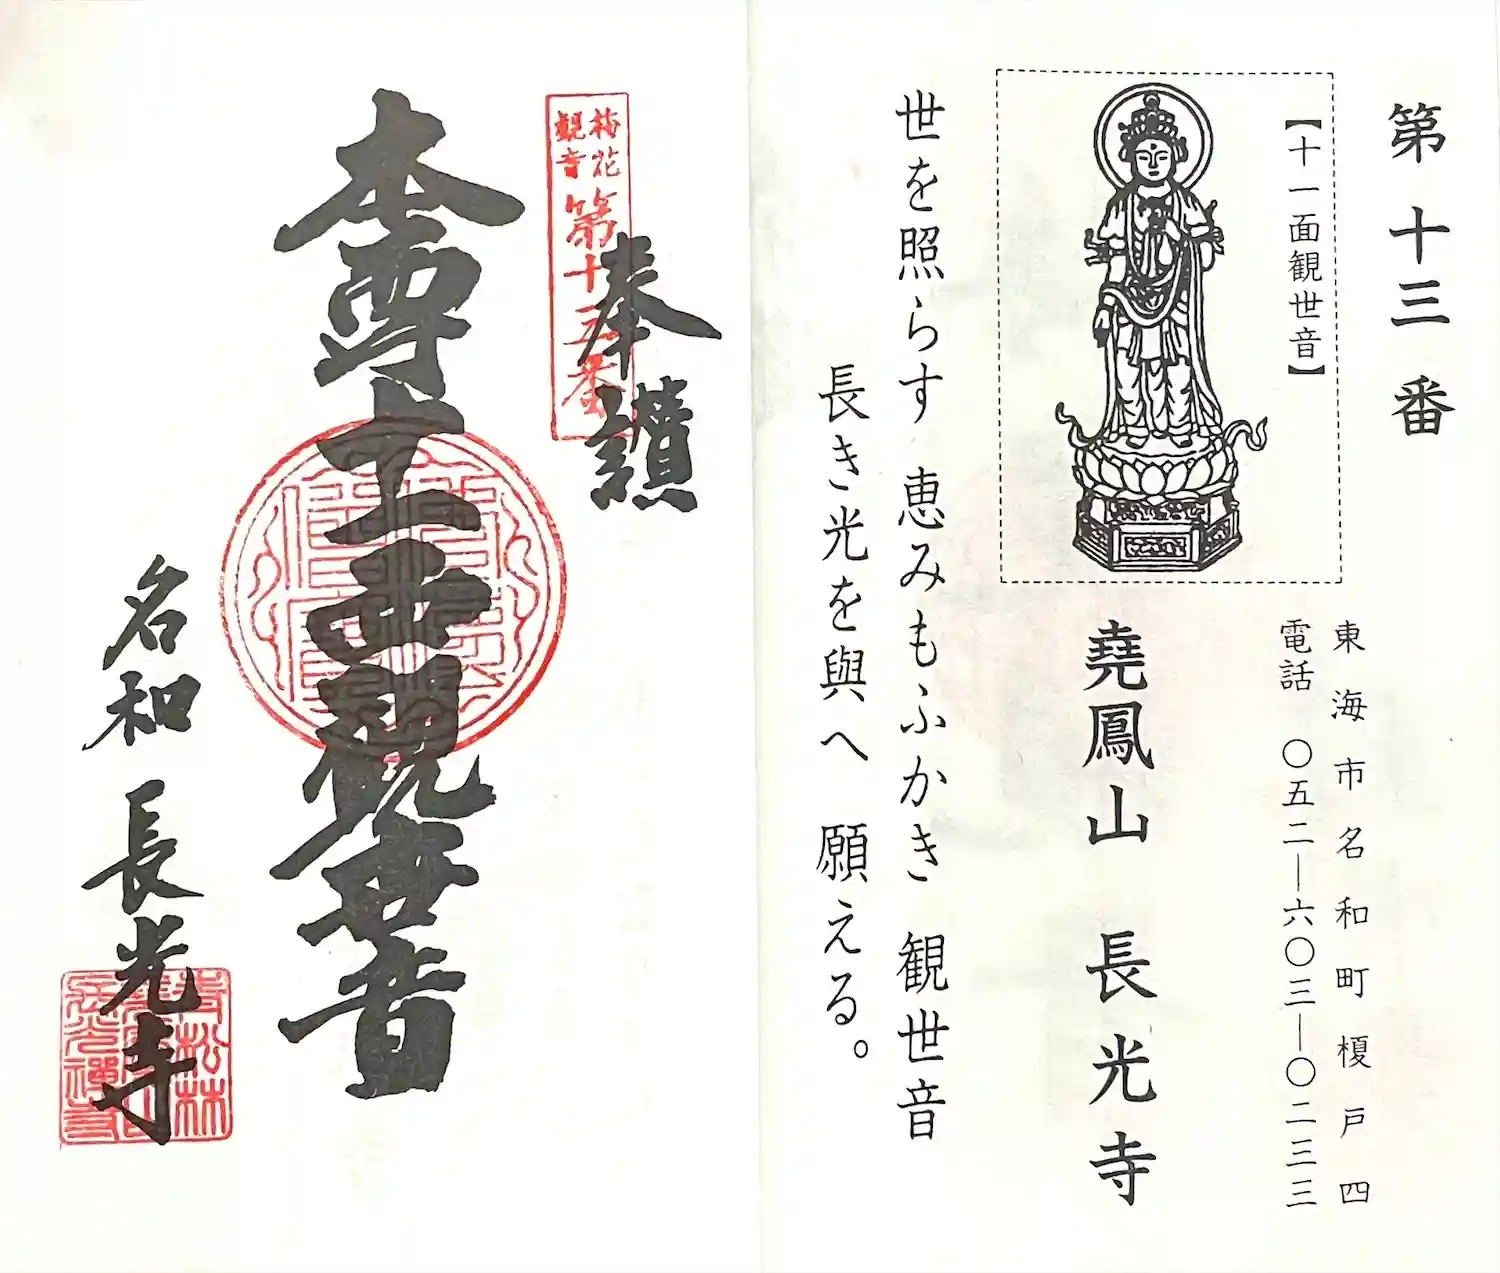 第十三番
【十一面観世音】
東海市名和町榎戸四
電話 〇五二―六〇三―〇二三三
堯鳳山 長光寺
世を照らす 恵みもふかき 観世音
長き光を與へ 願える。
梅花
観音
第十三番
奉讃
本尊十一面観世音
名和 長光寺